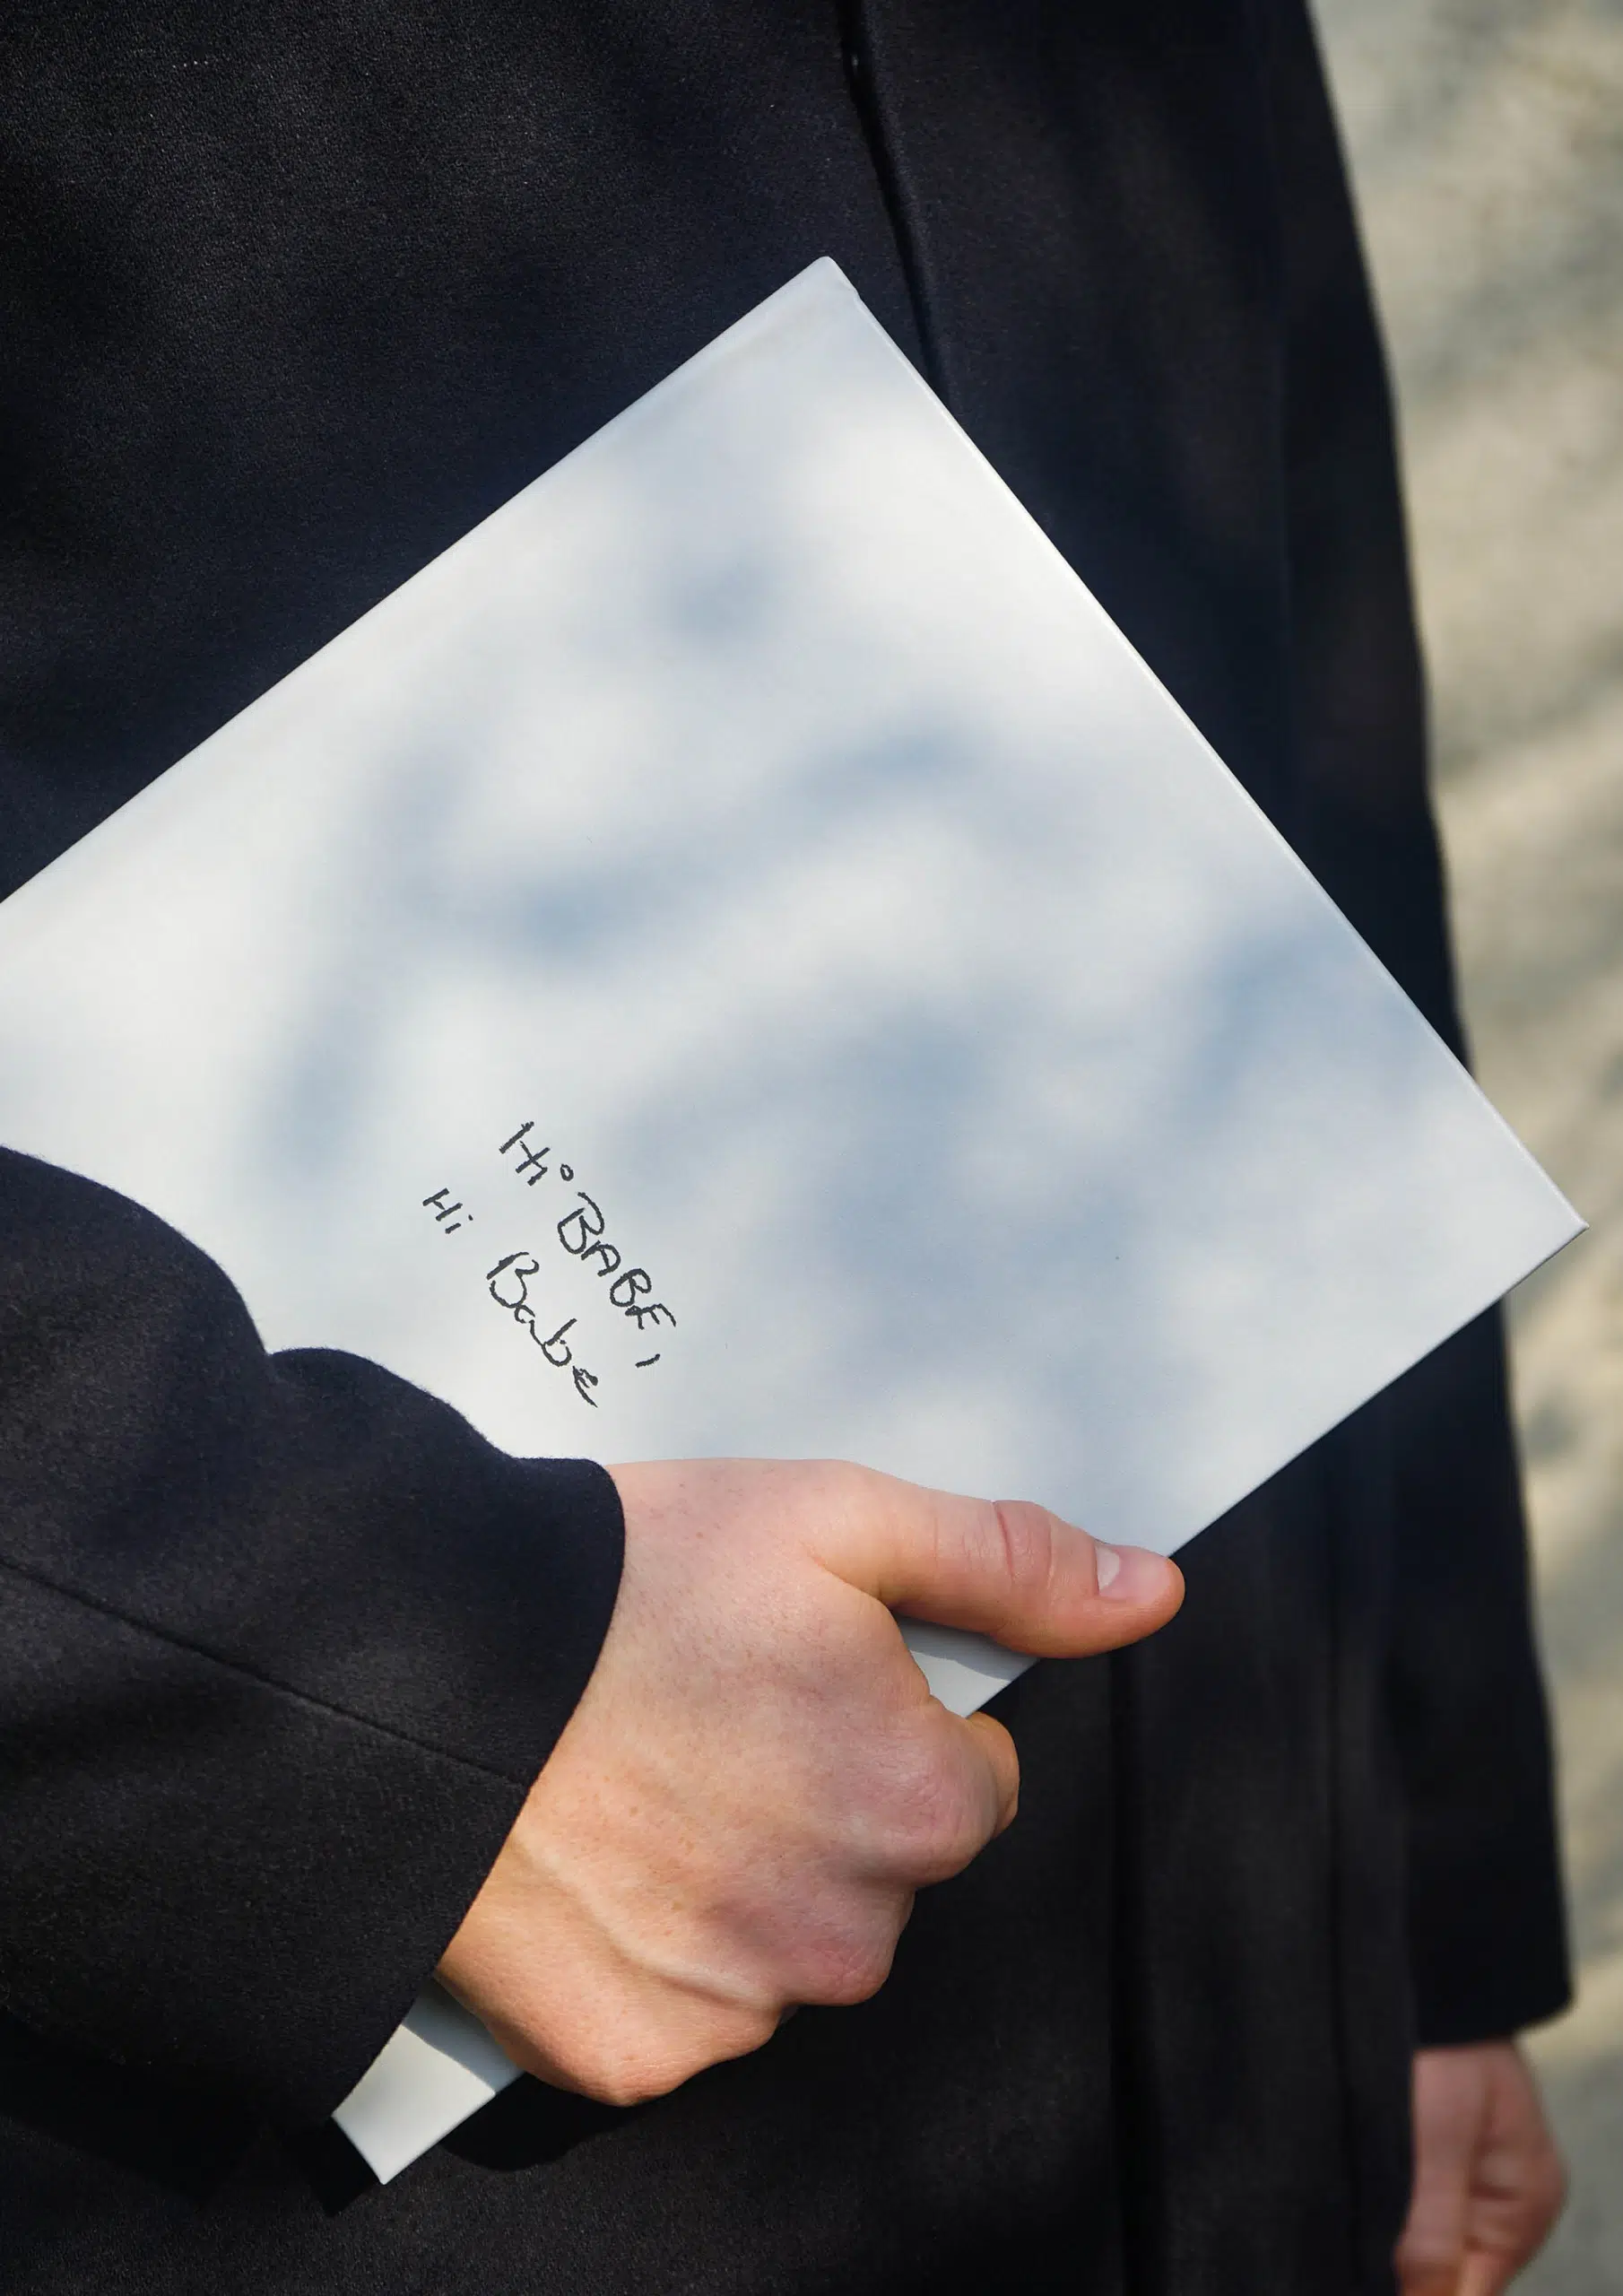 Hi BABE,
Hi Babe